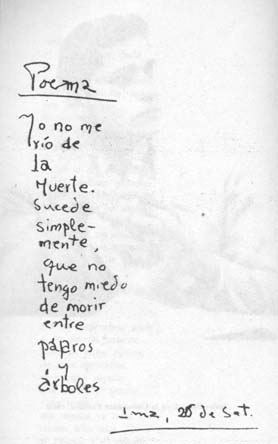 Poema
Yo no me
río de
la
Muerte.
Sucede
simple-
mente,
que no
tengo miedo
de morir
entre
pájaros
y
árboles
Lima, de Set.